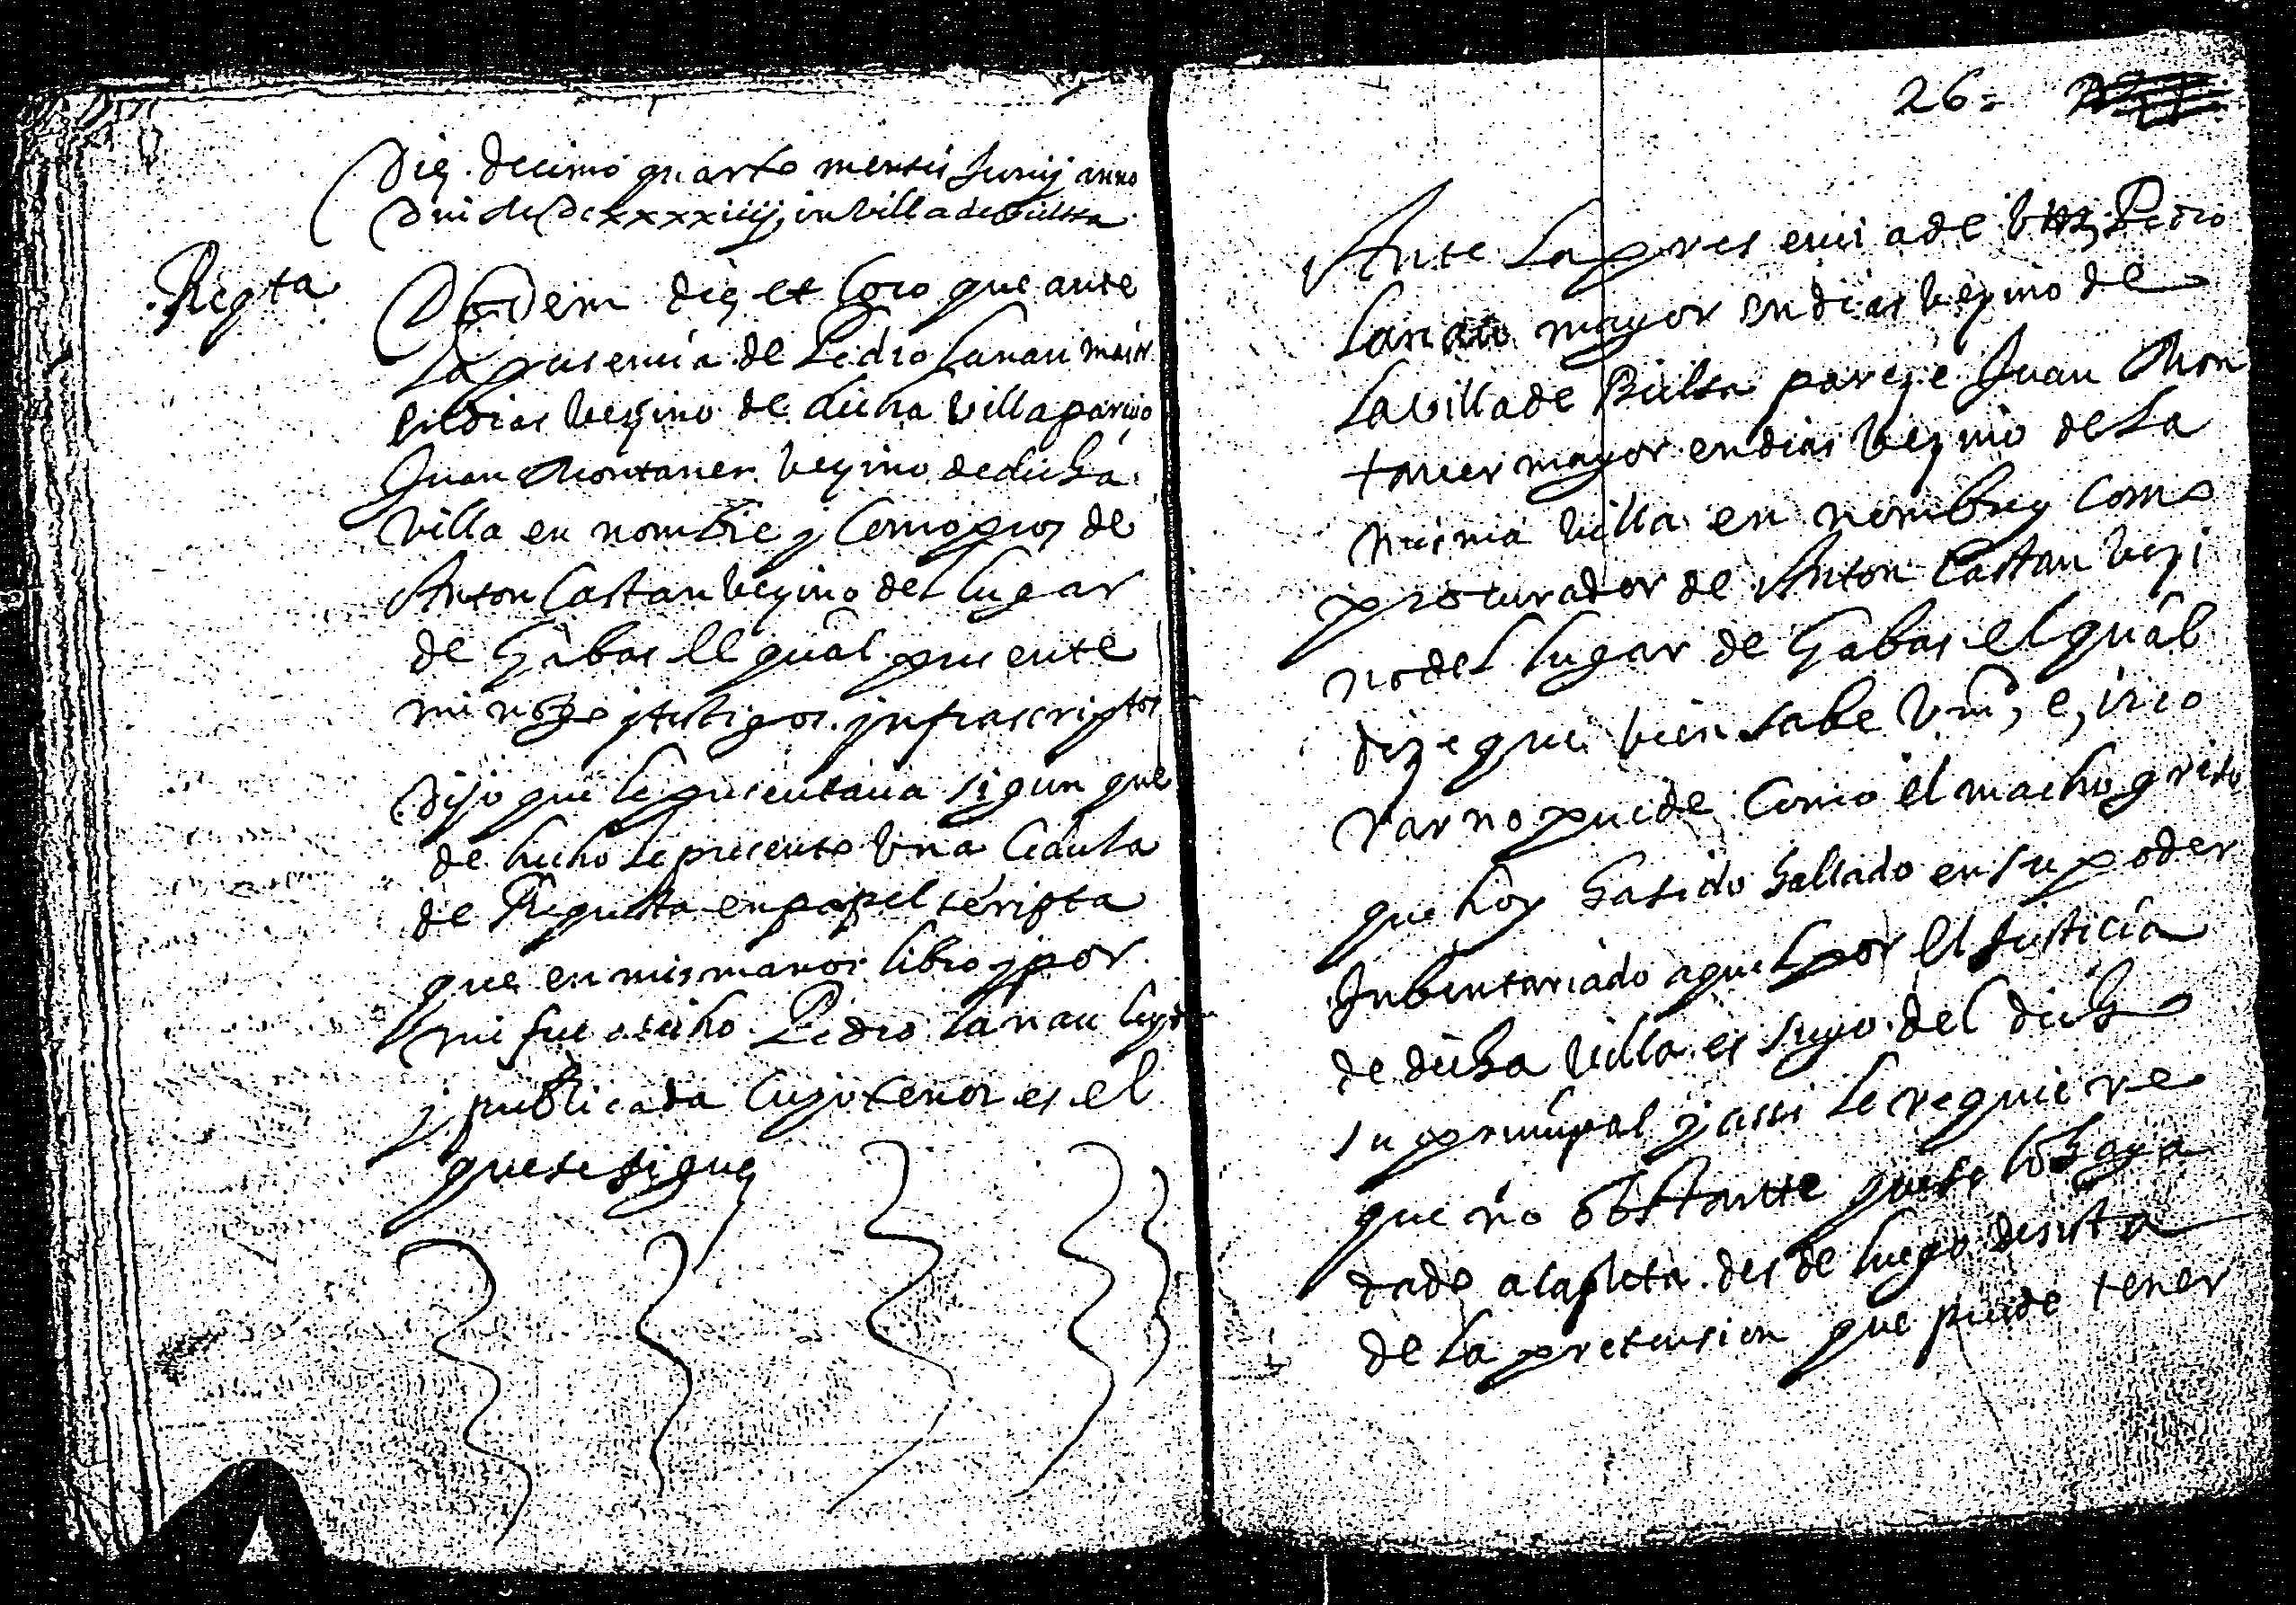 Die decimo quarto mensis Junij anno
Dni MDCxxxxiiij in villa de Bielsa
Reqta
Eodem die et loco que ante
la presencia de Pedro Lanau maior
en dias vezino de dicha villa parecio
Juan Montaner vezino de dicha
villa en nombre y como pror de
Anton Castan vezino del lugar
de Gabas el qual presente
mi noto y testigos infrascriptos
Dijo que le presentaua sigun que
de hecho le presento vna cedula
de Requesta en papel scripta
que en mis manos libro y por
mi fue a dicho Pedro Lanau leyda
y publicada cuyo tenor es el
que se sigue
26=
Ante la presencia de Vm Pedro
Lanau mayor en dias vezino de
la villa de Bielsa pareze Juan Mon
taner mayor en dias vezino de la
misma villa en nombre y como
procurador de Anton Castan vezi
no del lugar de Gabas el qual
dize que bien sabe Vm, e, ino
rar no puede como el macho
que hoy ha sido hallado en su poder
Inbentariado aquel por el Justicia
de dicha villa es suyo del dicho
su principal y assi le requiere
que no obstante que se lo haya
dado a la desde luego desista
de la pretension que puede tener